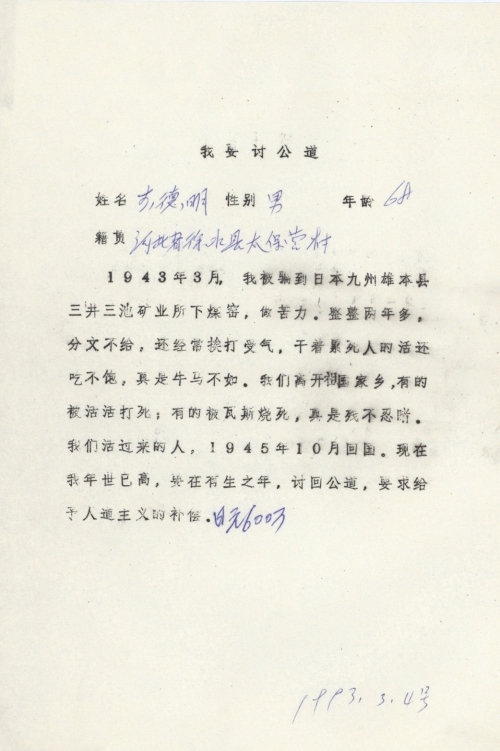 我要讨公道
姓名 德明 性别 男 年龄 68
籍贯 河北省徐水县太保营村
1943年3月，我被骗到日本九州雄本县
三井三池矿业所下煤窑，做苦力．整整两年多，
分文不给，还经常挨打受气，干着累死人的活还
吃不饱，真是牛马不如．我们离开祖国家乡，有的
被活活打死；有的被瓦斯烧死，真是残不忍睹．
我们活过来的人，1945年10月回国．现在
我年世已高，要在有生之年，讨回公道，要求给
予人道主义的补偿．日元600万
1993.3.4号